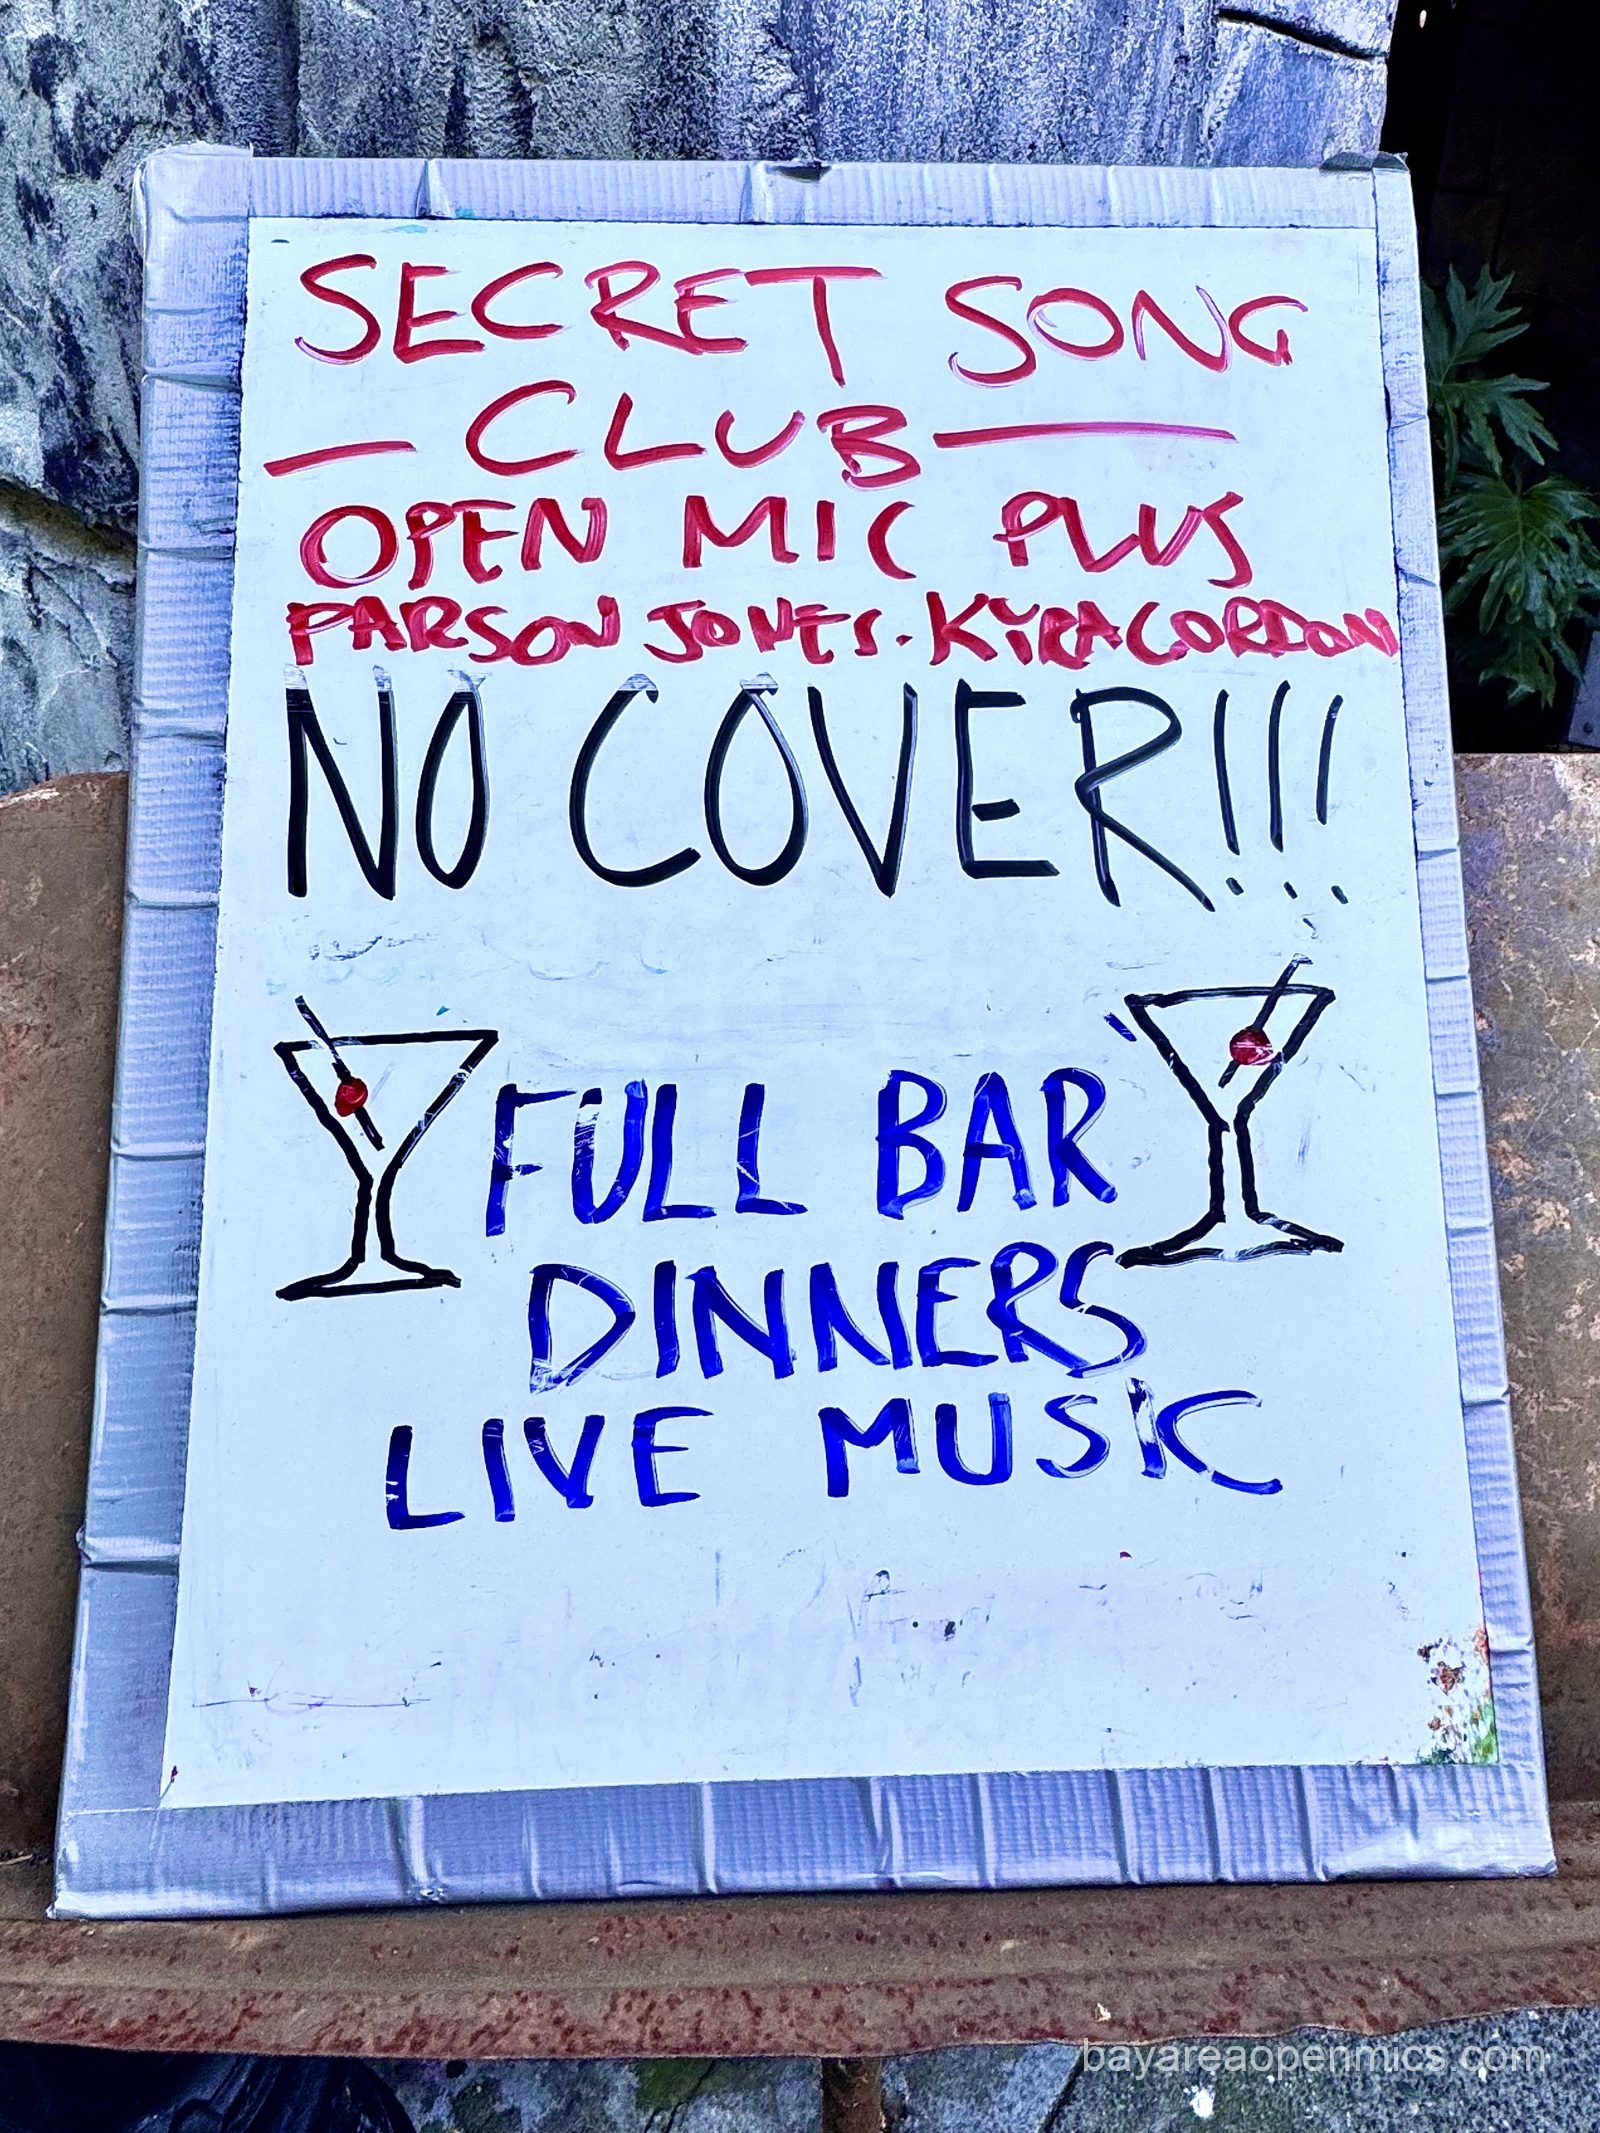 SECRET SONG
— CLUB —
OPEN MIC PLUS
PARSON JONES. KYRA CORDON
NO COVER!!!
FULL BAR
DINNERS
LIVE MUSIC
bayareaopenmics.com